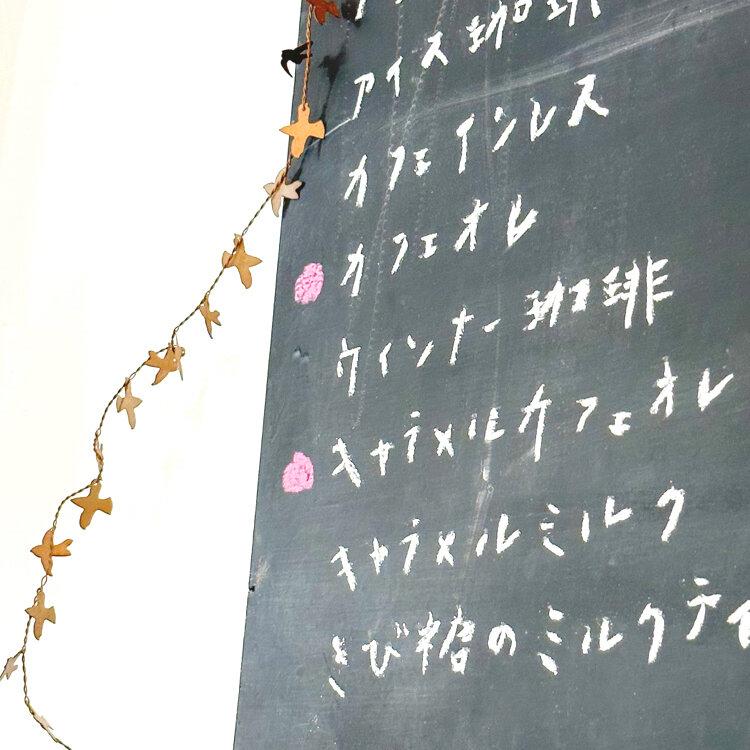 アイス珈琲
カフェインレス
カフェオレ
ウィンナー珈琲
キャラメルカフェオレ
キャラメルミルク
きび糖のミルクティ